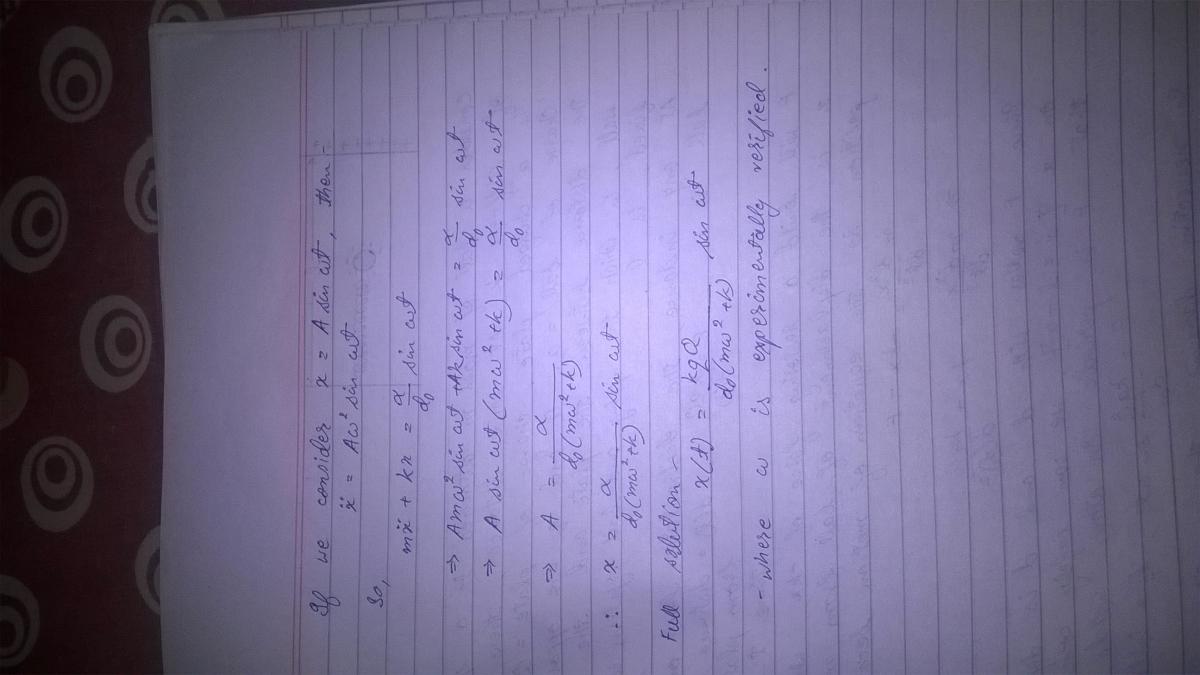 If we consider x = A sin ωt, then -
ẍ = Aω² sin ωt
So,
mẍ + kx = α/d₀ sin ωt
⇒ Amω² sin ωt + Ak sin ωt = α/d₀ sin ωt
⇒ A sin ωt (mω² + k) = α/d₀ sin ωt
⇒ A = α/d₀(mω² + k)
∴ x = α/d₀(mω² + k) sin ωt
Full solution -
x(t) = kqQ/d₀(mω² + k) sin ωt
- where ω is experimentally verified.